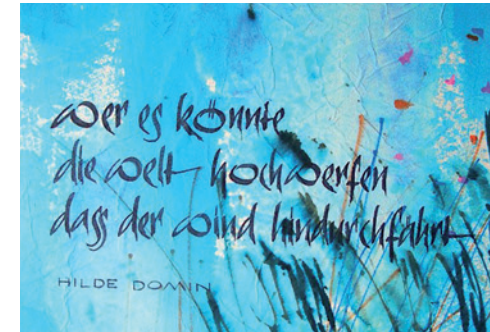 wer es könnte
die welt hochwerfen
dass der wind hindurchfährt
HILDE DOMIN